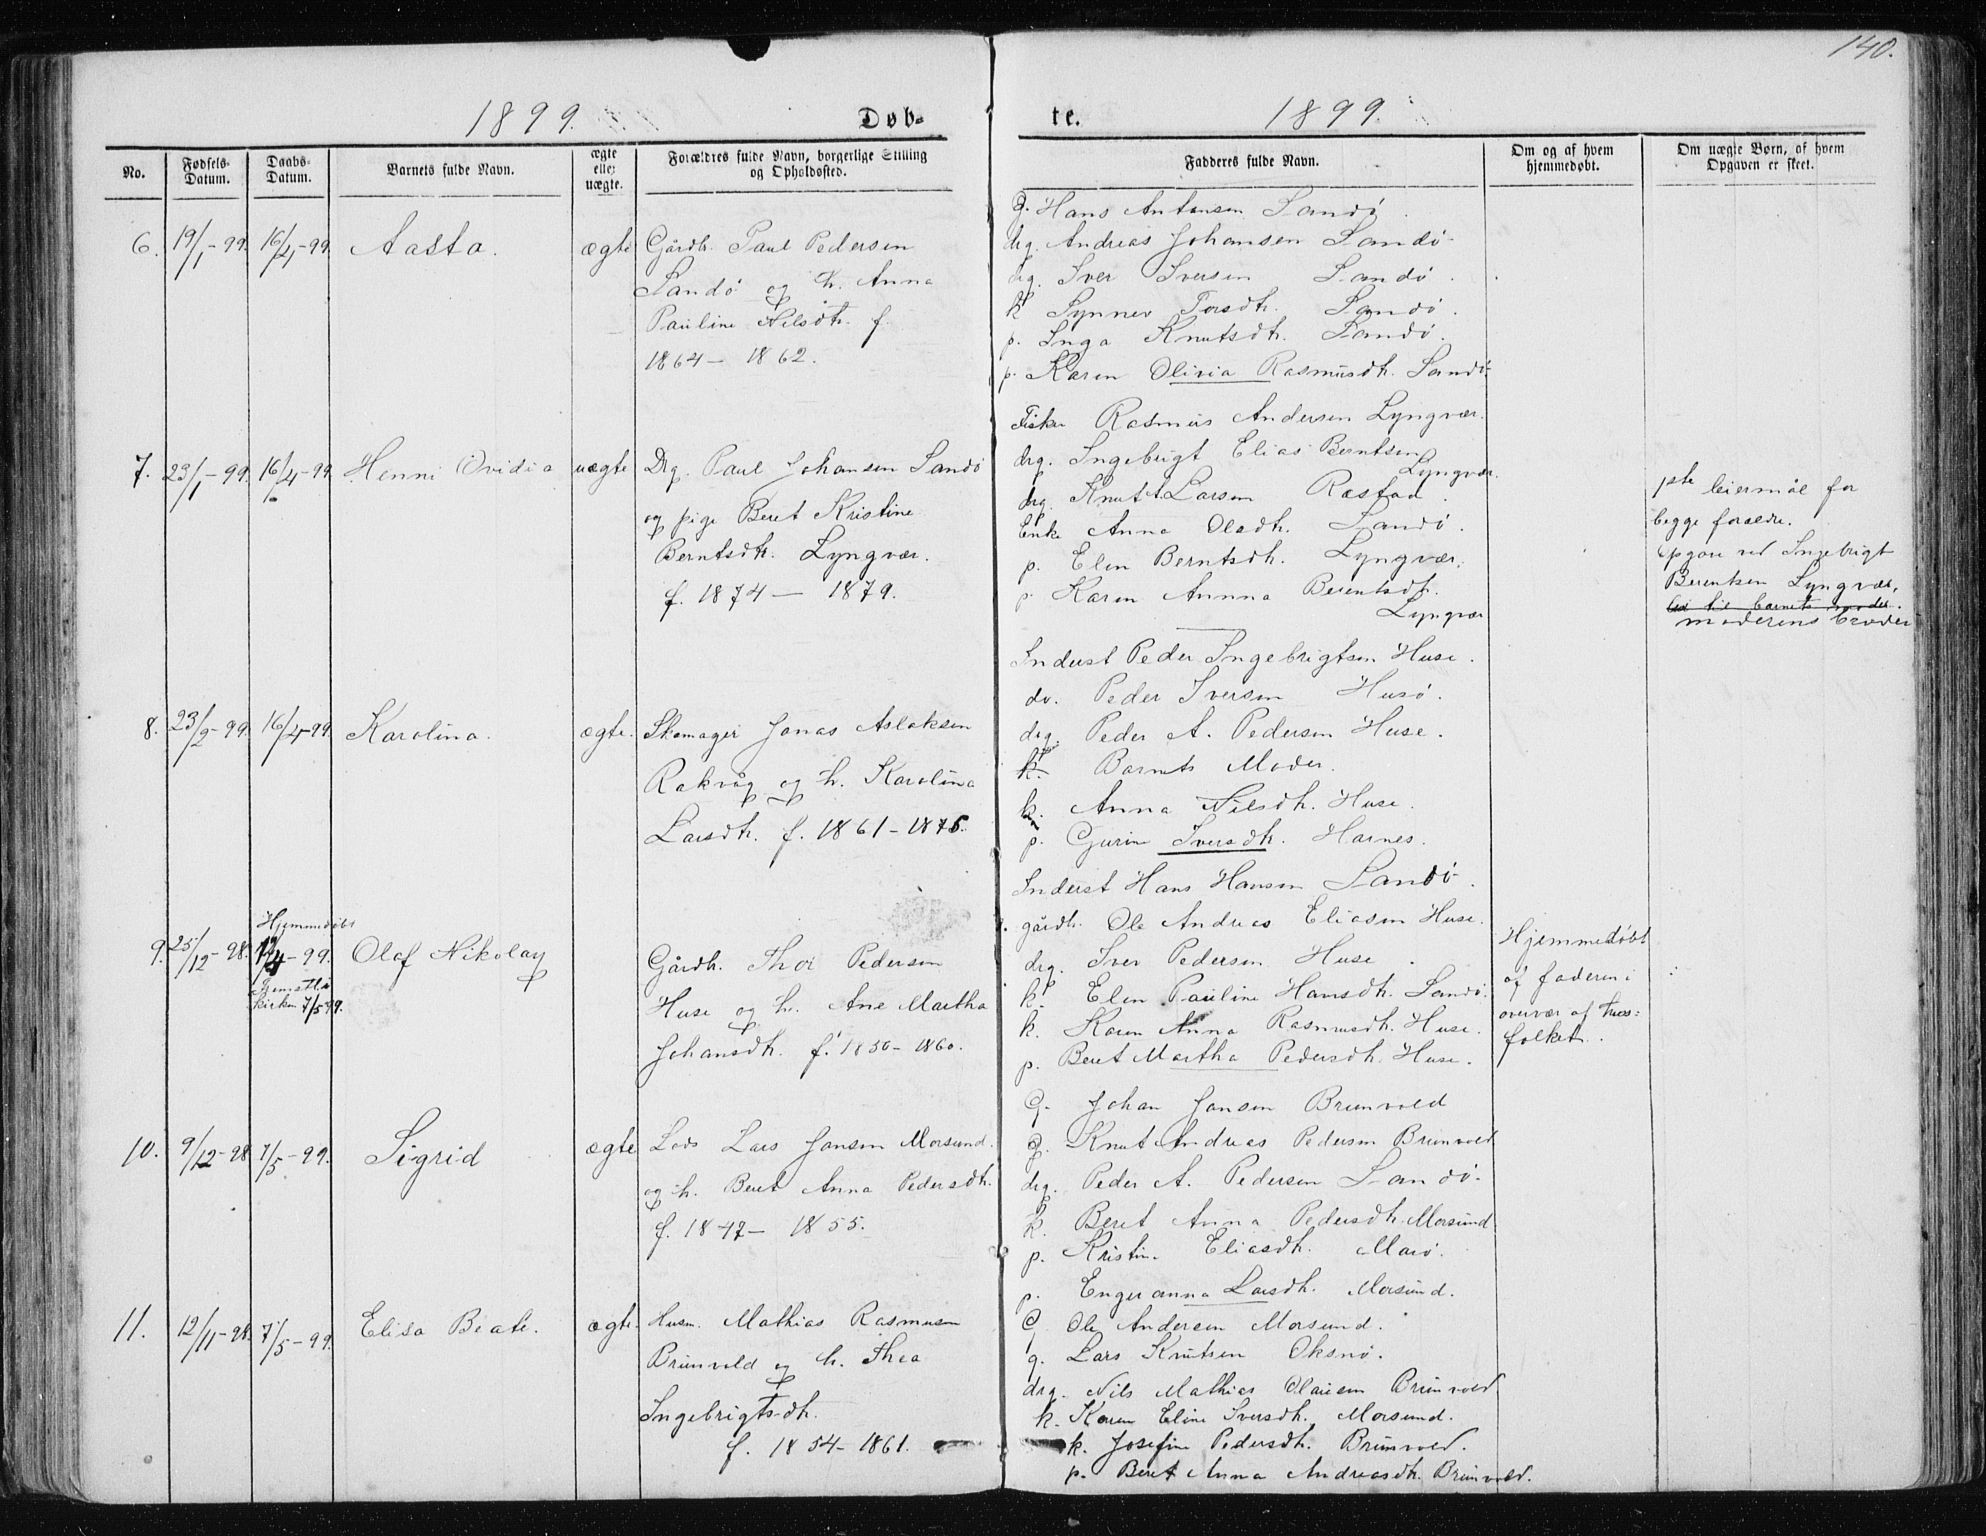 140.
1899. Døb- te. 1899.
No.
Fødsels-Datum.
Daabs-Datum.
Barnets fulde Navn.
ægte eller uægte.
Forældres fulde Navn, borgerlige Stilling og Opholdssted.
Fadderes fulde Navn.
Om og af hvem hjemmedøbt.
Om uægte Børn, af hvem Opgaven er skeet.
6. 19/1-99. 16/4-99. Aasta. ægte
Gårdb. Paul Pedersen
Sandö og h. Anna
Pauline Nilsdtr. f.
1864 - 1862.
g. Hans Antonsen Sandö.
drg. Andreas Johansen Sandö
drg. Iver Iversen Sandö.
k Synnev Torsdtr. Sandö.
p. Inga Knutsdtr. Sandö.
p. Karen Olivia Rasmusdtr. Sandö.
7. 23/1-99. 16/4-99. Henni Ovidia uægte
Drg. Paul Johansen Sandö
og pige Beret Kristine
Berntsdtr. Lyngvær.
f. 1874 - 1879.
Fisker Rasmus Andersen Lyngvær.
drg. Ingebrigt Elias Berntsen
Lyngvær.
drg. Knut Larsen Ræstad.
Enke Anna Olsdtr. Sandö.
p. Elen Berntsdtr. Lyngvær.
p. Karen Annna Berentsdtr.
Lyngvær
1ste leiermål for
begge foreldre.
Opgave ved Ingebrigt
Berentsen Lyngvær,
moderens broder
8. 23/2-99. 16/4-99. Karolina. ægte.
Skomager Jonas Aslaksen
Rakvåg og h. Karolina
Larsdtr. f. 1861-1875.
Inderst Peder Ingebrigtsen Huse.
do. Peder Iversen Husö.
drg. Peder A. Pedersen Huse.
k. Barnets Moder.
k. Anna Nilsdtr. Huse.
p. Gurine Iversdtr. Harnes.
9. 25/12-98. Hjemmedöbt
/4-99. Olaf Nikolay
kirken 7/5 99.
Gårdb. Thor Pedersen
Huse og h. Ane Martha
Johansdtr. f. 1850-1860.
Inderst Hans Hansen Sandö.
gårdb. Ole Andreas Eliasen Huse.
drg. Iver Pedersen Huse.
k. Elen Pauline Hansdtr. Sandö.
k. Karen Anna Rasmusdtr. Huse.
p. Beret Martha Pedersdtr. Huse.
Hjemmedöbt
af faderen i
overvær af Hus=
folket.
10. 9/12-98 7/5-99. Sigrid ægte
Lods Lars Jonsen Morsund.
og h. Beret Anna Pedersdtr.
f. 1847- 1855.
G. Johan Jonsen Brunvold
g. Knut Andreas Pedersen Brunvold
drg. Peder A. Pedersen Sandö.
k. Beret Anna Pedersdtr. Morsund
p. Kristine Eliasdtr. Marö.
p. Engeranna Larsdtr. Morsund.
11. 12/11-98. 7/5-99. Elisa Beate. ægte.
Husm. Mathias Rasmusen
Brunvold og h. Thea
Ingebrigtsdtr.
f. 1854-1861.
G. Ole Andersen Morsund.
g. Lars Knutsen Oksnö.
drg. Nils Mathias Olausen Brunvold
k. Karen Eline Iversdtr. Morsund.
k. Josefine Pedersdtr. Brunvold.
p. Beret Anna Andreasdtr. Brunvold.